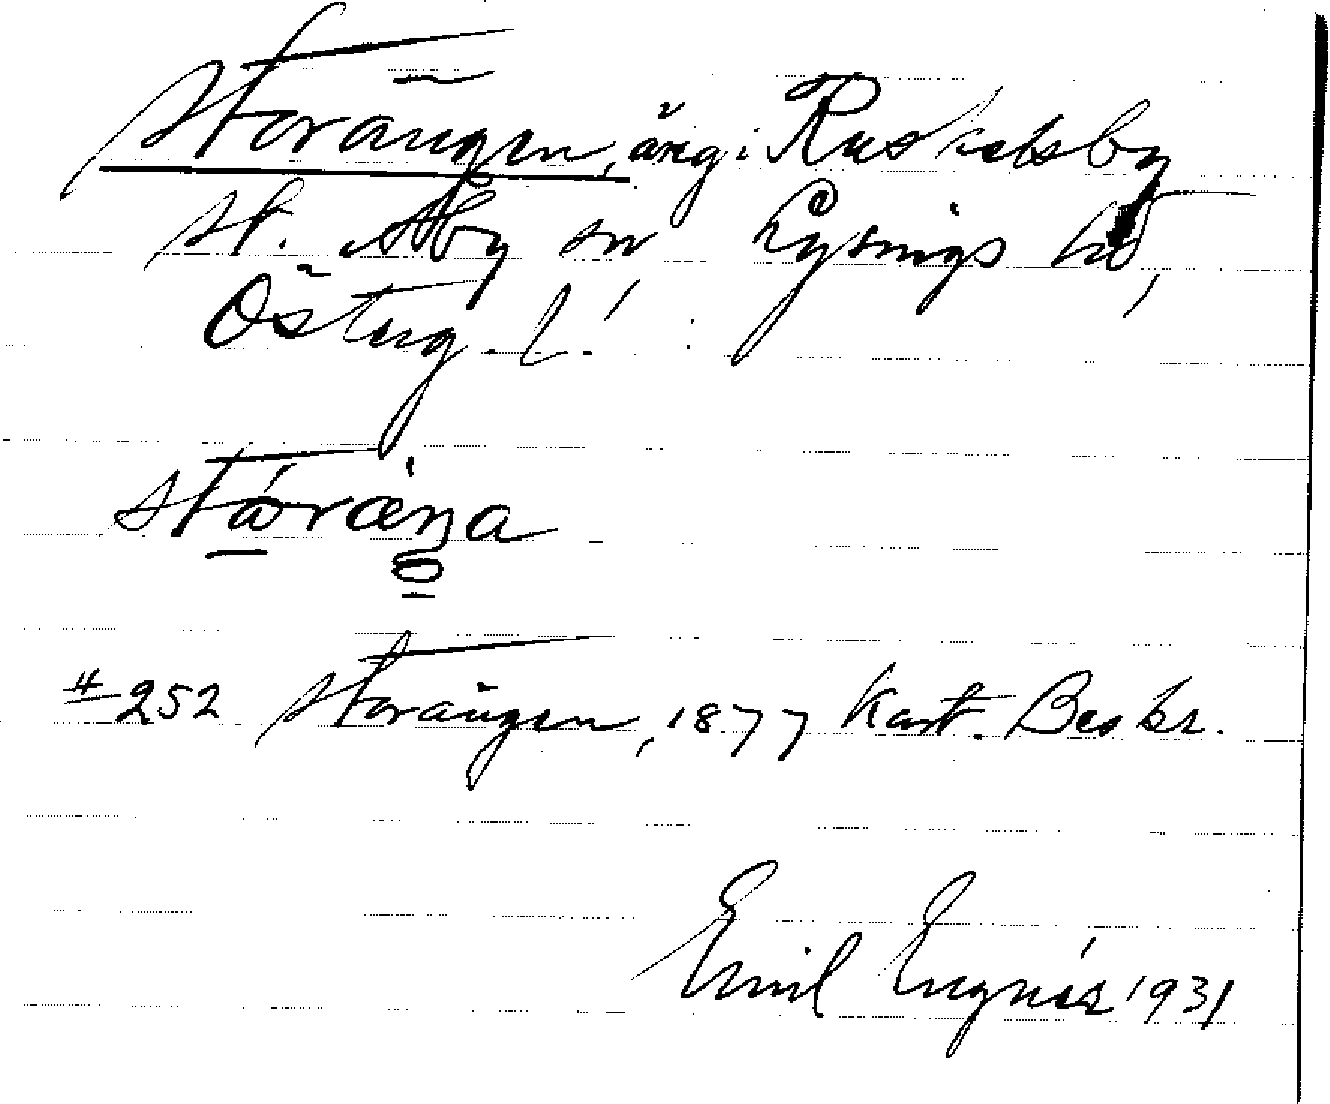 Storängen, äng i Ruskelsby
St. Åby sn Lysings hd,
Österg. l.
stóræŋa
#252 Storängen, 1877 Kart. Beskr.
Emil 1931